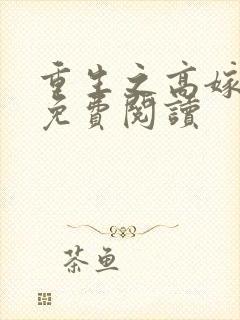 重生之高嫁
免費閱讀
茶鱼